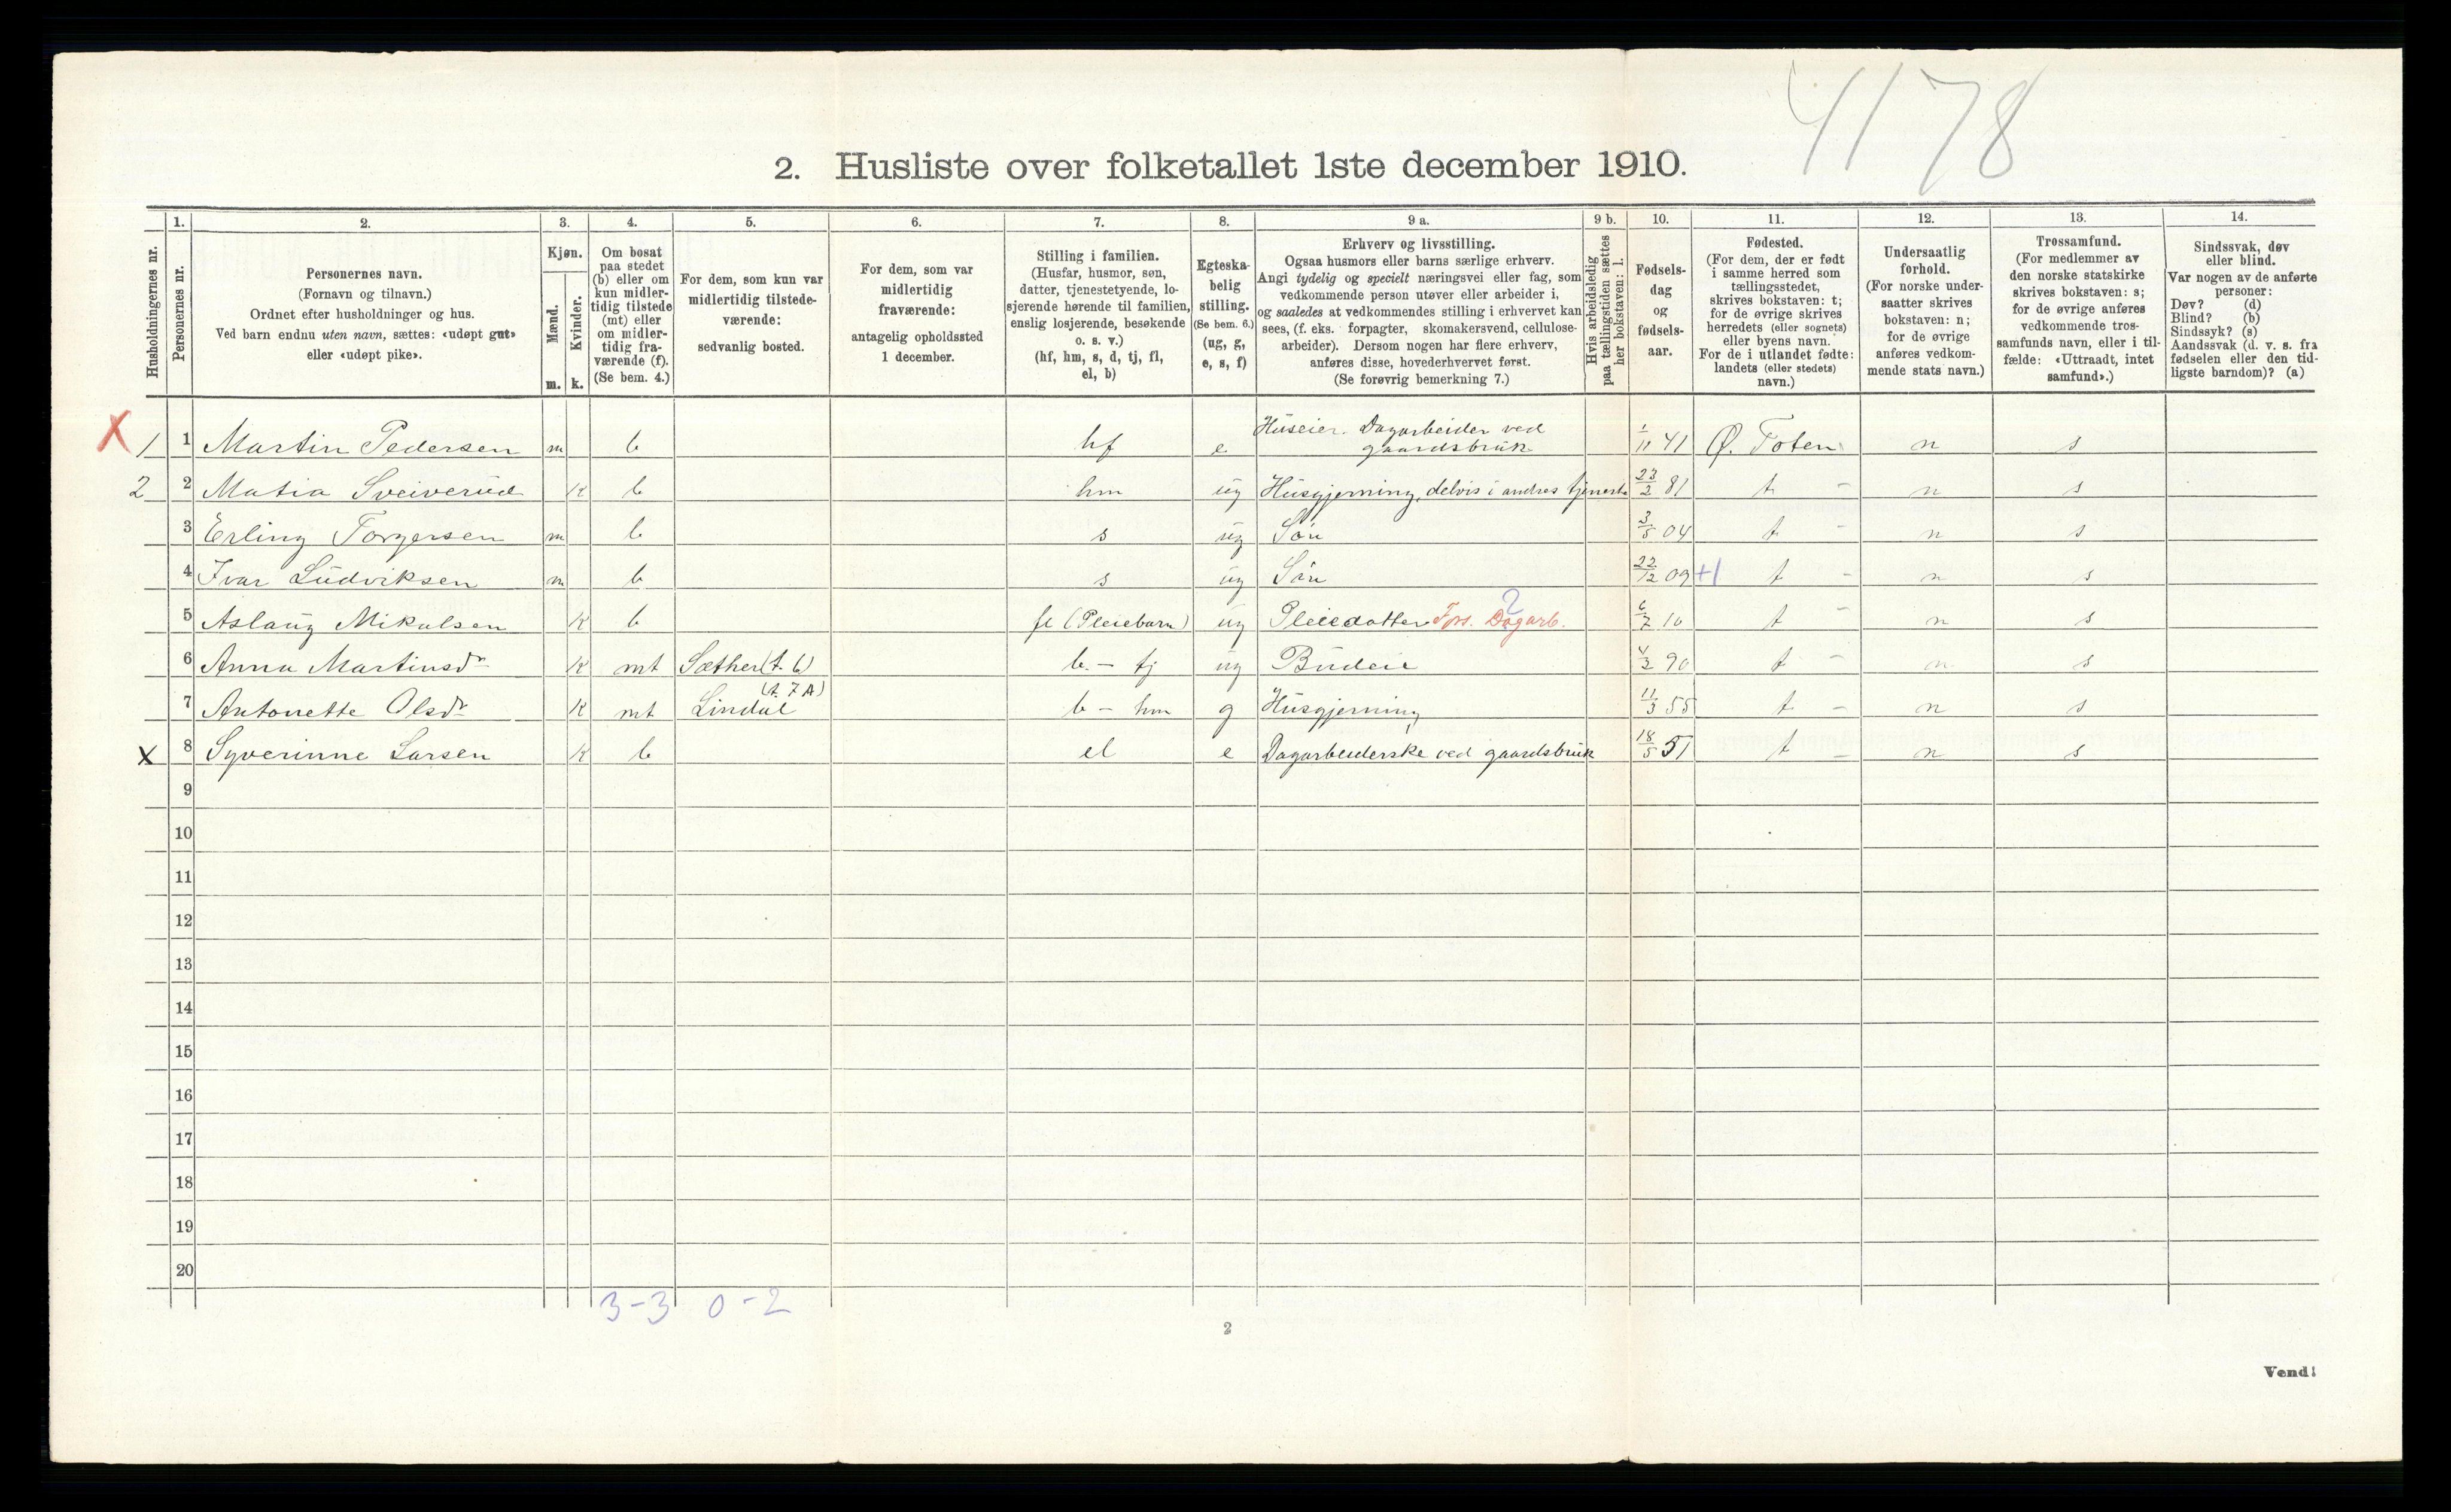 4178
2. Husliste over folketallet 1ste december 1910.
Husholdningernes nr.
1.
Personernes nr.
2.
Personernes navn.
(Fornavn og tilnavn.)
Ordnet efter husholdninger og hus.
Ved barn endnu uten navn, sættes: «udøpt gut»
eller «udøpt pike».
3.
Kjøn.
Mænd.
Kvinder.
m. k.
4.
Om bosat
paa stedet
(b) eller om
kun midler-
tidig tilstede
(mt) eller
om midler-
tidig fra-
værende (f).
(Se bem. 4.)
5.
For dem, som kun var
midlertidig tilstede-
værende:
sedvanlig bosted.
6.
For dem, som var
midlertidig
fraværende:
antagelig opholdssted
1 december.
7.
Stilling i familien.
(Husfar, husmor, søn,
datter, tjenestetyende, lo-
sjerende hørende til familien,
enslig losjerende, besøkende
o. s. v.)
(hf, hm, s, d, tj, fl,
el, b)
8.
Egteska-
belig
stilling.
(Se bem. 6.)
(ug, g,
e, s, f)
9 a.
Erhverv og livsstilling.
Ogsaa husmors eller barns særlige erhverv.
Angi tydelig og specielt næringsvei eller fag, som
vedkommende person utøver eller arbeider i,
og saaledes at vedkommendes stilling i erhvervet kan
sees, (f. eks. forpagter, skomakersvend, cellulose-
arbeider). Dersom nogen har flere erhverv,
anføres disse, hovederhvervet først.
(Se forøvrig bemerkning 7.)
9 b.
Hvis arbeidsledig
paa tællingstiden sættes
her bokstaven: l.
10.
Fødsels-
dag
og
fødsels-
aar.
11.
Fødested.
(For dem, der er født
i samme herred som
tællingsstedet,
skrives bokstaven: t;
for de øvrige skrives
herredets (eller sognets)
eller byens navn.
For de i utlandet fødte:
landets (eller stedets)
navn.)
12.
Undersaatlig
forhold.
(For norske under-
saatter skrives
bokstaven: n;
for de øvrige
anføres vedkom-
mende stats navn.)
13.
Trossamfund.
(For medlemmer av
den norske statskirke
skrives bokstaven: s;
for de øvrige anføres
vedkommende tros-
samfunds navn, eller i til-
fælde: «Uttraadt, intet
samfund».)
14.
Sindssvak, døv
eller blind.
Var nogen av de anførte
personer:
Døv? (d)
Blind? (b)
Sindssyk? (s)
Aandssvak (d. v. s. fra
fødselen eller den tid-
ligste barndom)? (a)
X 1 1 Martin Pedersen m b hf e Huseier. Dagarbeider ved gaardsbruk 1/11 41 Ø. Toten n s
2 2 Matia Sveiverud k b hm ug Husgjerning, delvis i andres tjeneste 23/2 81 t - n s
3 Erling Torgersen m b s ug Søn 3/5 04 t - n s
4 Ivar Ludviksen m b s ug Søn 22/12 09 +1 t - n s
5 Aslaug Mikalsen k b fl (Pleiebarn) ug Pleiedatter Fors. Dagarb. 2 6/7 10 t - n s
6 Anna Martinsdr k mt Sæther (t. 6) b. - tj ug Budeie 4/2 90 t - n s
7 Antonette Olsdr k mt Lindal (t. 7 A) b - hm g Husgjerning 11/3 55 t - n s
x 8 Syverinne Larsen k b el e Dagarbeiderske ved gaardsbruk 18/5 51 t - n s
9
10
11
12
13
14
15
16
17
18
19
20
3-3 0-2
2
Vend!